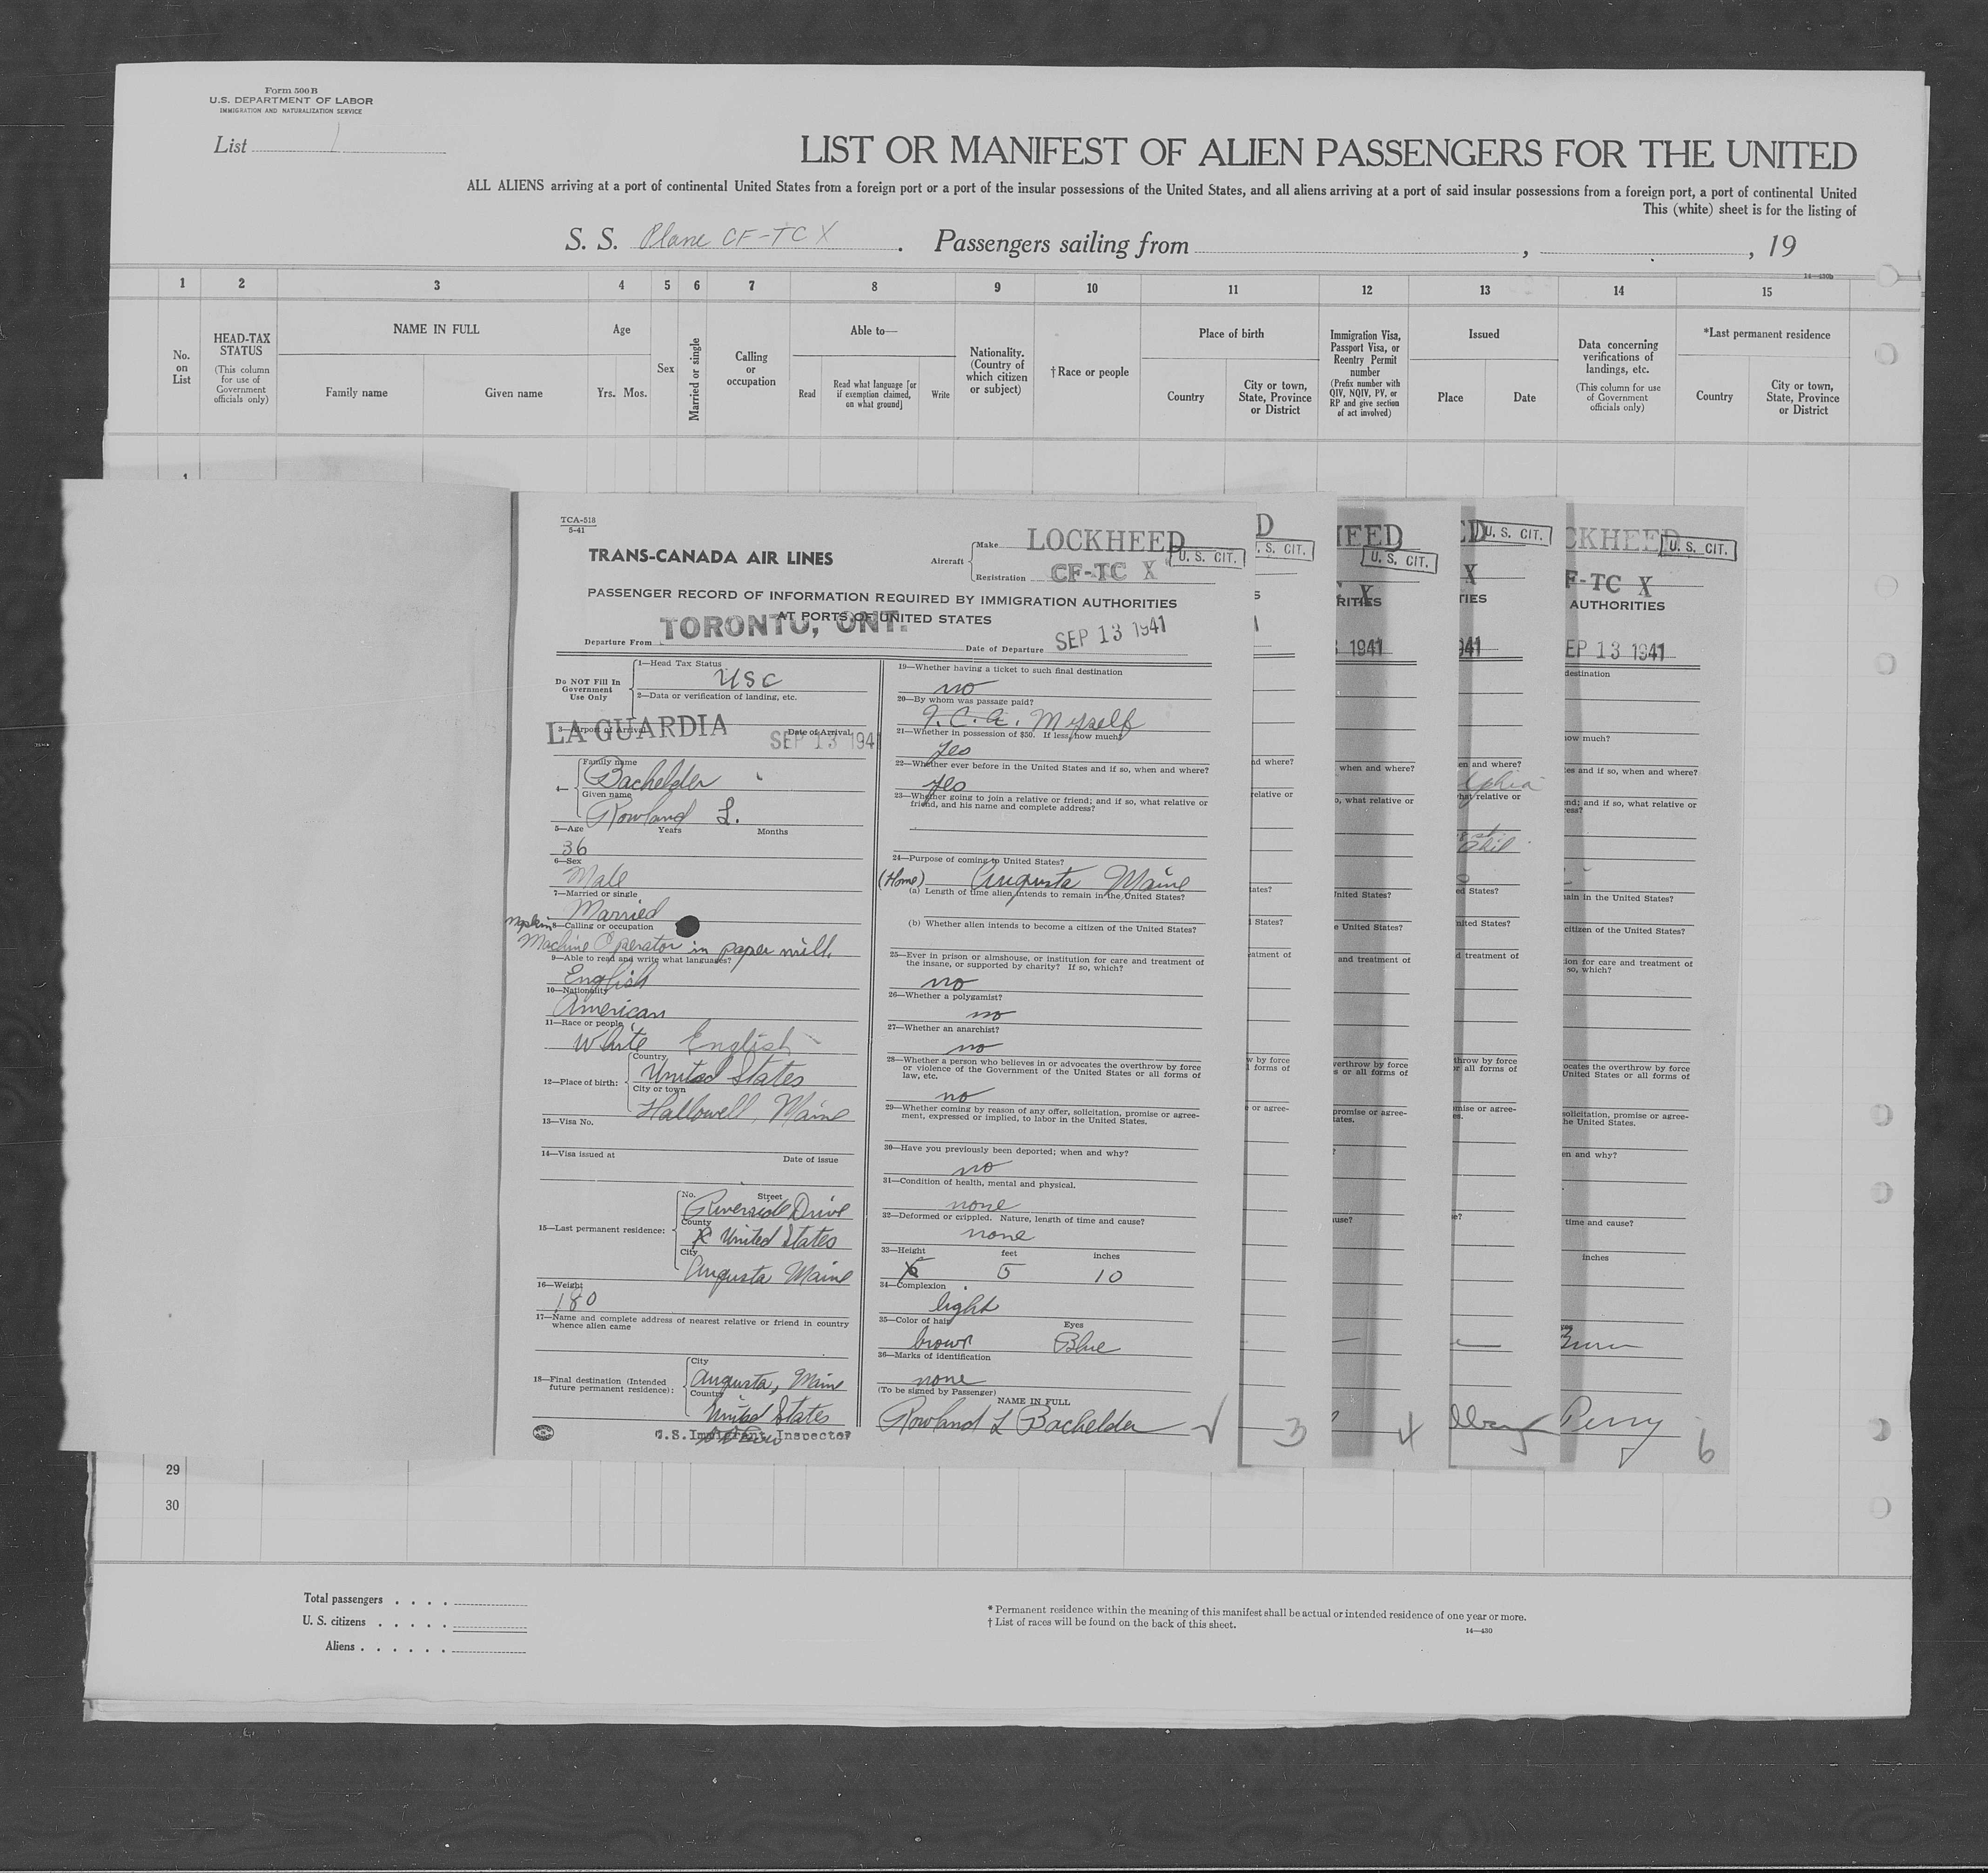 Form 500 B
U.S. DEPARTMENT OF LABOR
IMMIGRATION AND NATURALIZATION SERVICE
List 1
LIST OR MANIFEST OF ALIEN PASSENGERS FOR THE UNITED
ALL ALIENS arriving at a port of continental United States from a foreign port or a port of the insular possessions of the United States, and all aliens arriving at a port of said insular possessions from a foreign port, a port of continental United
This (white) sheet is for the listing of
S. S. Plane CF-TC X . Passengers sailing from , , 19
14—430b
1 2 3 4 5 6 7 8 9 10 11 12 13 14 15
No. on List
HEAD-TAX STATUS
(This column for use of Government officials only)
NAME IN FULL
Family name Given name
Age
Yrs. Mos.
Sex
Married or single
Calling or occupation
Able to—
Read
Read what language [or if exemption claimed, on what ground]
Write
Nationality. (Country of which citizen or subject)
†Race or people
Place of birth
Country
City or town, State, Province or District
Immigration Visa, Passport Visa, or Reentry Permit number
(Prefix number with QIV, NQIV, PV, or RP and give section of act involved)
Issued
Place Date
Data concerning verifications of landings, etc.
(This column for use of Government officials only)
*Last permanent residence
Country
City or town, State, Province or District
1
TCA-518
5-41
TRANS-CANADA AIR LINES
Aircraft
Make LOCKHEED
U. S. CIT.
Registration CF-TC X
PASSENGER RECORD OF INFORMATION REQUIRED BY IMMIGRATION AUTHORITIES
AT PORTS OF UNITED STATES
Departure From TORONTO, ONT.
Date of Departure SEP 13 1941
Do NOT Fill In
Government
Use Only
1—Head Tax Status
USC
2—Data or verification of landing, etc.
3—Airport of Arrival Date of Arrival
LA GUARDIA SEP 13 194
4—
Family name
Bachelder
Given name
Rowland L.
5—Age Years Months
36
6—Sex
Male
7—Married or single
Married
Napkin
8—Calling or occupation
Machine Operator in paper mill.
9—Able to read and write what languages?
English
10—Nationality
American
11—Race or people
White English
12—Place of birth:
Country
United States
City or town
Hallowell, Maine
13—Visa No.
14—Visa issued at Date of issue
15—Last permanent residence:
No. Street
Riverside Drive
County
United States
City
Augusta Maine
16—Weight
180
17—Name and complete address of nearest relative or friend in country
whence alien came
18—Final destination (Intended
future permanent residence):
City
Augusta, Maine
Country
United States
U.S.Immigrant Inspector
19—Whether having a ticket to such final destination
no
20—By whom was passage paid?
T.C.A. Myself
21—Whether in possession of $50. If less, how much?
Yes
22—Whether ever before in the United States and if so, when and where?
Yes
23—Whether going to join a relative or friend; and if so, what relative or
friend, and his name and complete address?
24—Purpose of coming to United States?
(Home) Augusta Maine
(a) Length of time alien intends to remain in the United States?
(b) Whether alien intends to become a citizen of the United States?
25—Ever in prison or almshouse, or institution for care and treatment of
the insane, or supported by charity? If so, which?
no
26—Whether a polygamist?
no
27—Whether an anarchist?
no
28—Whether a person who believes in or advocates the overthrow by force
or violence of the Government of the United States or all forms of
law, etc.
no
29—Whether coming by reason of any offer, solicitation, promise or agree-
ment, expressed or implied, to labor in the United States.
30—Have you previously been deported; when and why?
no
31—Condition of health, mental and physical.
none
32—Deformed or crippled. Nature, length of time and cause?
none
33—Height feet inches
5 10
34—Complexion
light
35—Color of hair Eyes
brown Blue
36—Marks of identification
none
(To be signed by Passenger)
NAME IN FULL
Rowland L Bachelder
D
. S. CIT.
S
nd where?
relative or
tates?
l States?
eatment of
w by force
l forms of
e or agree-
3
HEED
U. S. CIT.
X
RITIES
1941
when and where?
o, what relative or
United States?
e United States?
and treatment of
verthrow by force
s or all forms of
promise or agree-
tates.
?
ause?
4
ED
U. S. CIT.
X
TIES
941
en and where?
lphia
hat relative or
Phil.
ed States?
nited States?
d treatment of
throw by force
r all forms of
mise or agree-
es.
e?
CKHEED
U. S. CIT.
F-TC X
AUTHORITIES
EP 13 1941
destination
ow much?
es and if so, when and where?
nd; and if so, what relative or
ress?
ain in the United States?
citizen of the United States?
ion for care and treatment of
so, which?
ocates the overthrow by force
United States or all forms of
solicitation, promise or agree-
he United States.
en and why?
time and cause?
inches
yes
Perry
6
29
30
Total passengers . . . .
U. S. citizens . . . . .
Aliens . . . . . .
* Permanent residence within the meaning of this manifest shall be actual or intended residence of one year or more.
† List of races will be found on the back of this sheet.
14—430